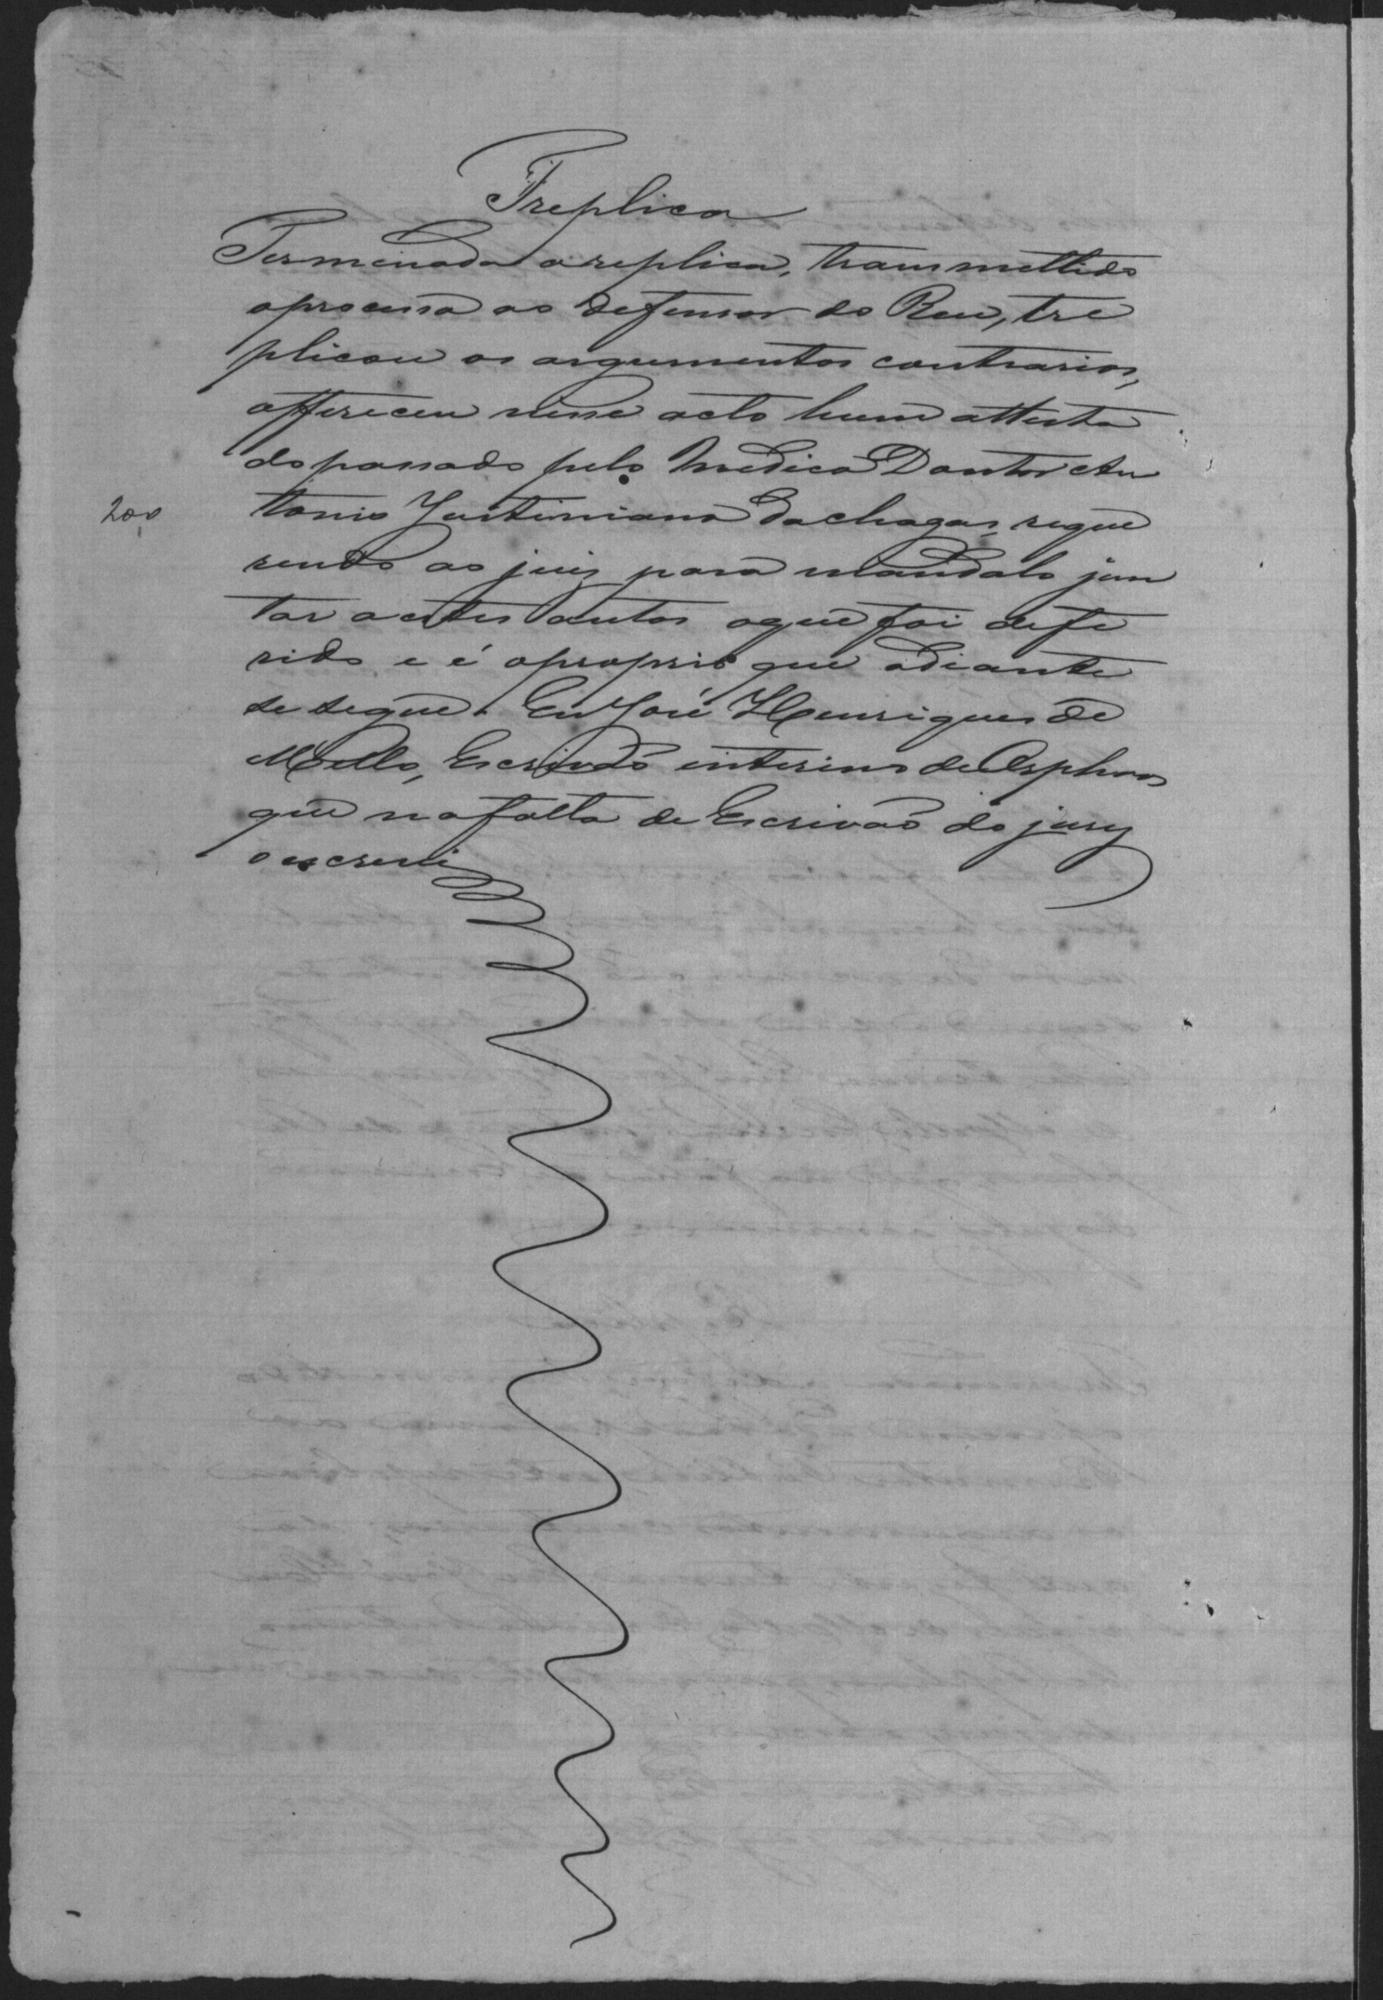 Treplica
Terminada a replica, transmettido
o processo ao defensor do Reu, tre
plicou os argumentos contrarios,
offereceu nesse acto hum attesta
do passado pelo Medico Doutor An
200 tonio Justiniano da chagas, reque
rendo ao juiz para mandalo jun
tar a estes autos o que foi defe
rido e é o proprio que adiante
se segue. Eu José Henriques de
Mello, Escrivão interino de Orphaos
que na falta de Escrivão do jury
o escrevi